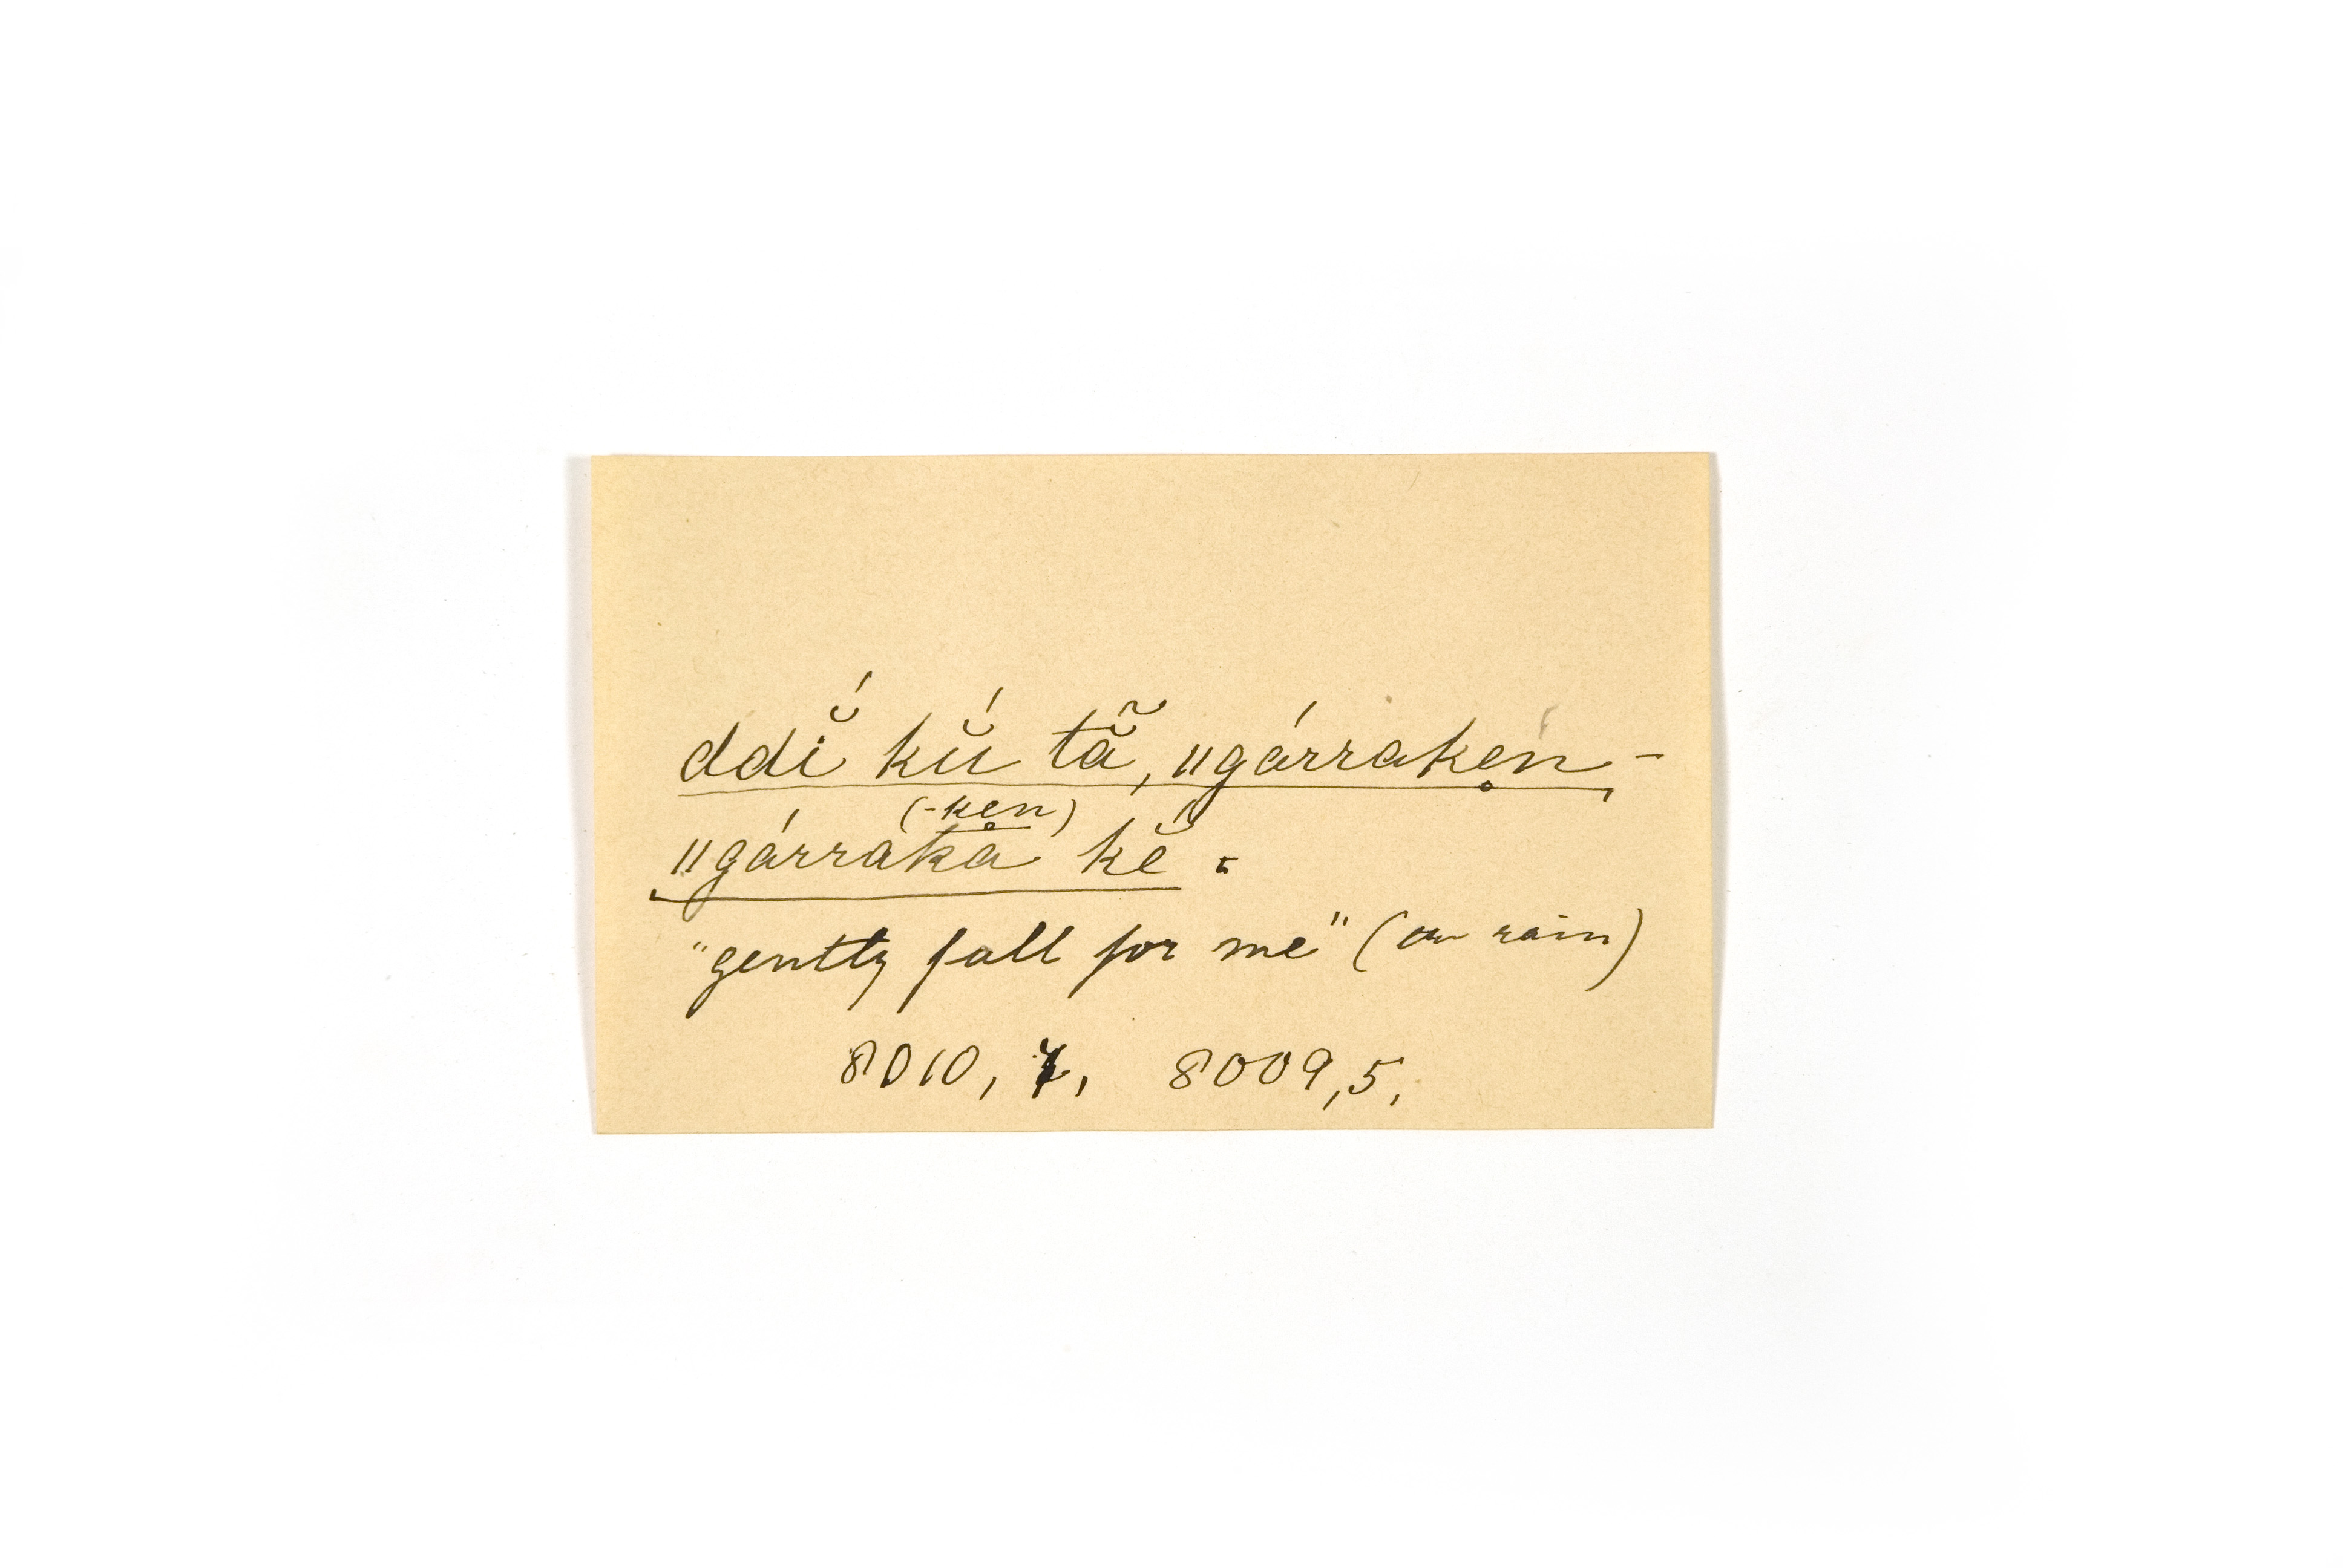 ddĭ́ kŭ́ tā̆̃, ǁgárrake̥n-
(-ke̥n)
ǁgárraka kĕ́.
"gently fall for me" (or rain)
8010, 7, 8009,5,